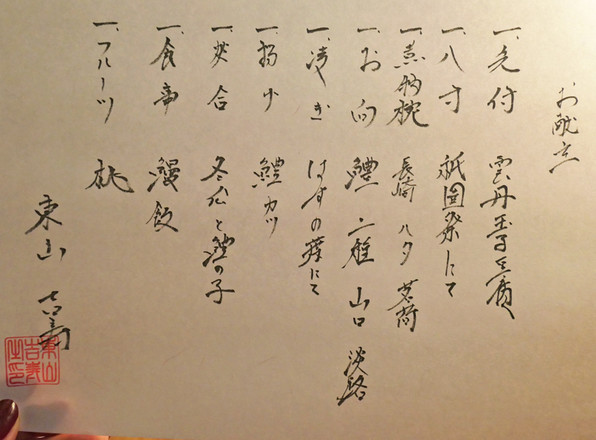 お献立
一、先付 雲丹玉子豆腐
一、八寸 祇園祭にて
一、煮物椀 長崎 ハタ 茗荷
一、お向 鱧 二種 山口 淡路
一、凌ぎ はすの葉にて
一、揚げ 鱧カツ
一、炊合 冬瓜と鱧の子
一、食事 鰻飯
一、フルーツ 桃
東山 吉寿